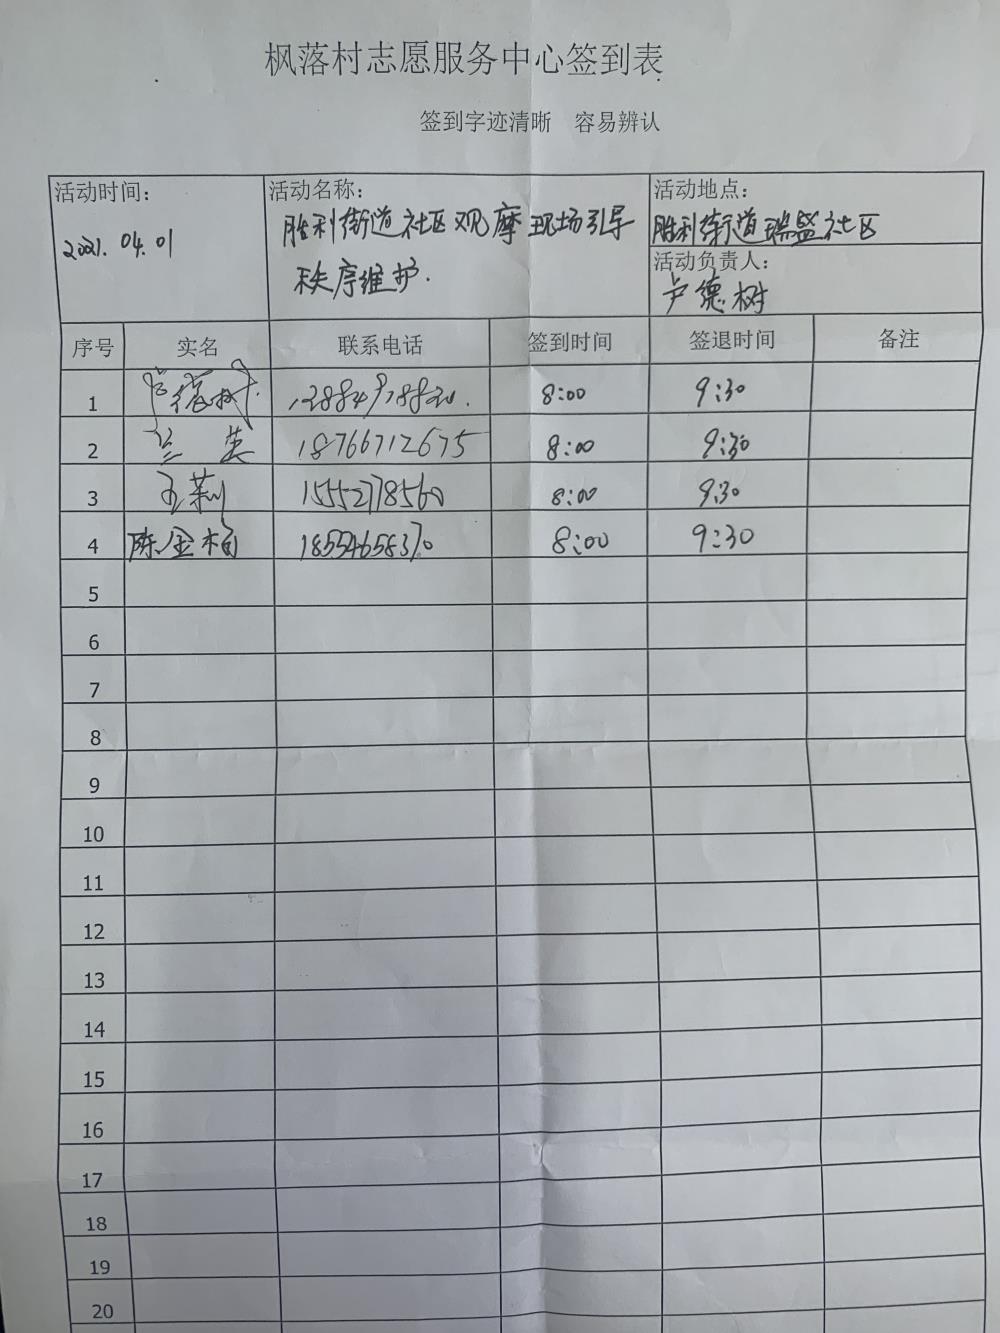 枫落村志愿服务中心签到表
签到字迹清晰 容易辨认
活动时间: 活动名称: 活动地点:
2021.04.01 胜利街道社区观摩现场引导 胜利街道瑞盛社区
秩序维护. 活动负责人:
卢德树
序号 实名 联系电话 签到时间 签退时间 备注
1 卢德树 8:00 9:30
2 兰英 18766712675 8:00 9:30
3 王莉 15552778560 8:00 9:30
4 陈金梅 18554658370 8:00 9:30
5
6
7
8
9
10
11
12
13
14
15
16
17
18
19
20